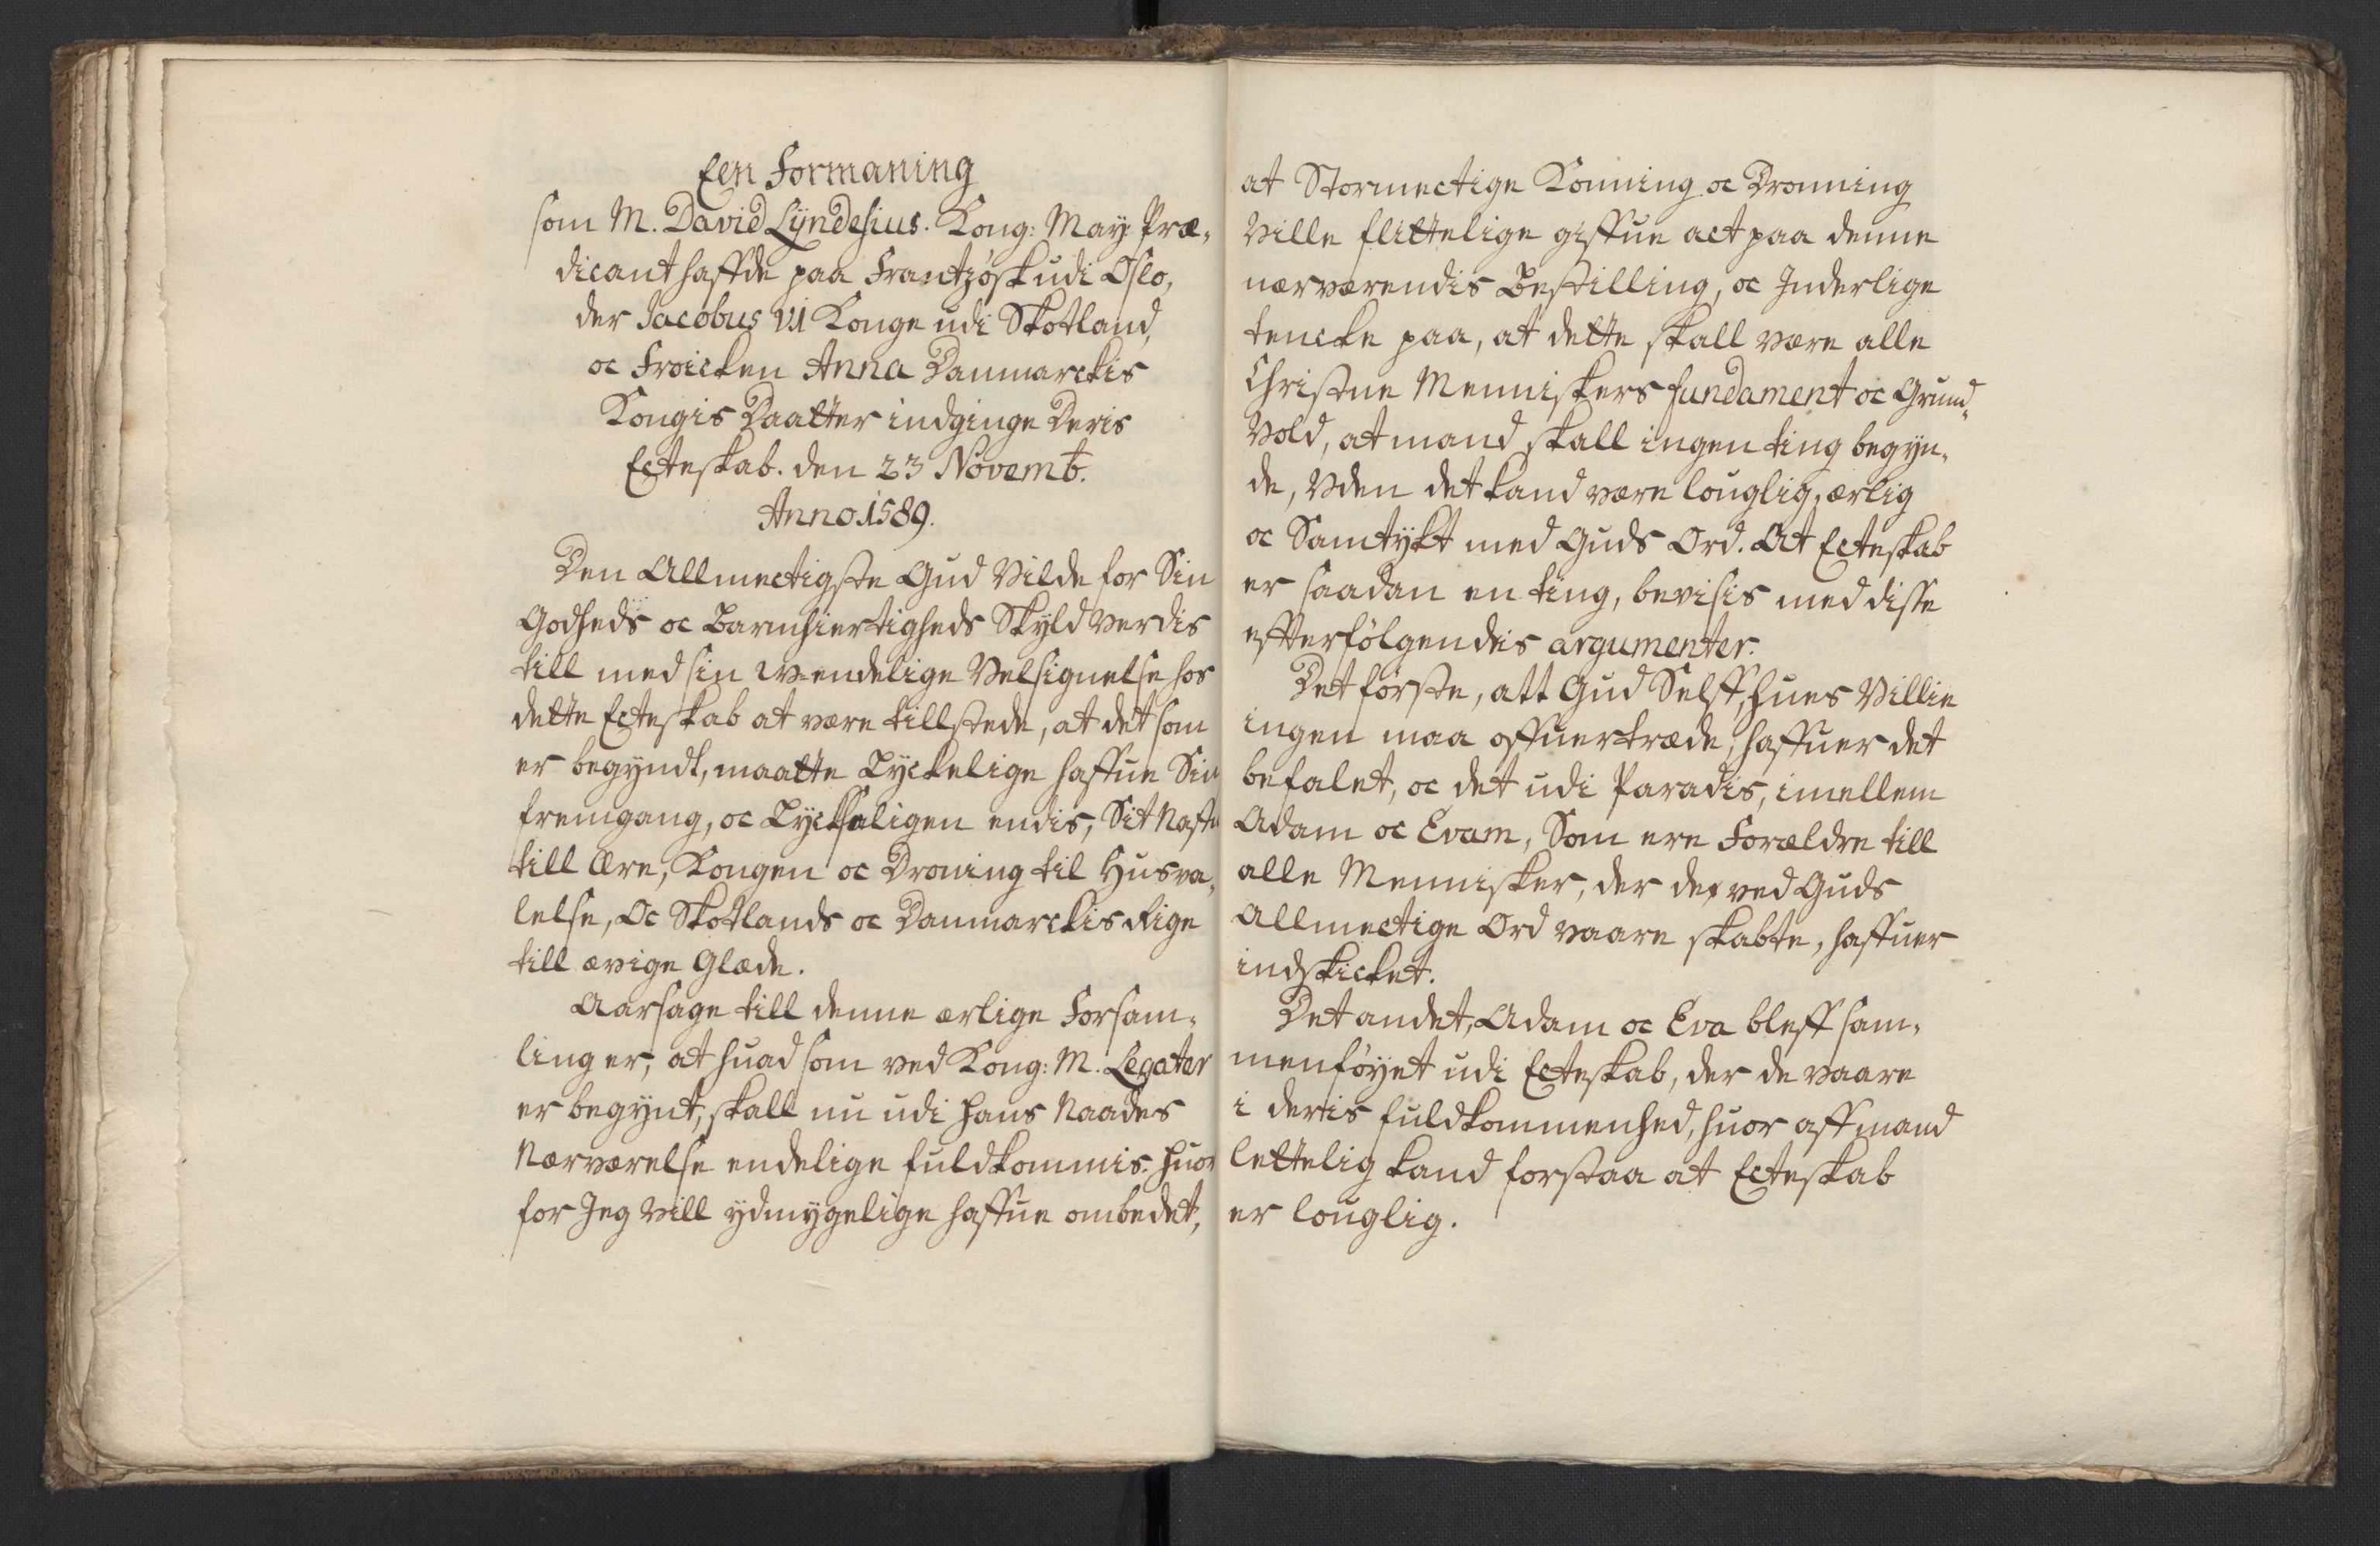 Een Formaning
som M. David Lÿndesius. Kong: May: Præ-
dicant haffde paa Frantzøsk udi Oslo,
der Jacobus VI Konge udi Skotland,
oc Frøicken Anna Danmarckis
Kongis Daatter indginge Deris
Ecteskab. den 23 Novemb.
Anno 1589.
Den Allmectigste Gud Vilde for Sin
Godheds oc Barmhiertigheds Skyld verdis
till med sin u-endelige Velsignelse hos
dette Ecteskab at være tillstede, at det som
er begyndt, maatte Lyckelige haffue Sin
fremgang, oc Lycksaligen endis, Sit Naffn
till Ære, Kongen oc Droning til Husva-
lelse, Oc Skotlands oc Danmarckis Rige
till ævige Glæde.
Aarsage till denne ærlige Forsam-
ling er, at huad som ved Kong: M. Legater
er begynt, skall nu udi Hans Naades
Nærværelse endelige fuldkommis. Huor
for Jeg Vill ydmygelige haffue ombedet,
at Stormectige Konning oc Dronning
Ville flittelige giffue act paa denne
nærværendis Bestilling, oc Inderlige
tencke paa, at dette skall være alle
Christne Menniskers fundament oc Grund-
Vold, at mand skall ingen ting begyn-
de, Vden det kand være louglig, ærlig
oc Samtÿkt med Guds Ord. At Ecteskab
er saadan en ting, bevisis med disse
effterfölgendis argumenter.
Det förste, att Gud Selff, hues Villie
ingen maa offuertræde, haffuer det
befalet, oc det udi Paradis, imellem
Adam oc Evam, Som ere Forældre till
alle Mennisker, der de ved Guds
Allmectige Ord vaare skabte, haffuer
indskicket.
Det andet, Adam oc Eva bleff sam-
menföyet udi Ecteskab, der de vaare
i deris fuldkommenhed, huor aff mand
lettelig kand forstaa at Ecteskab
er louglig.